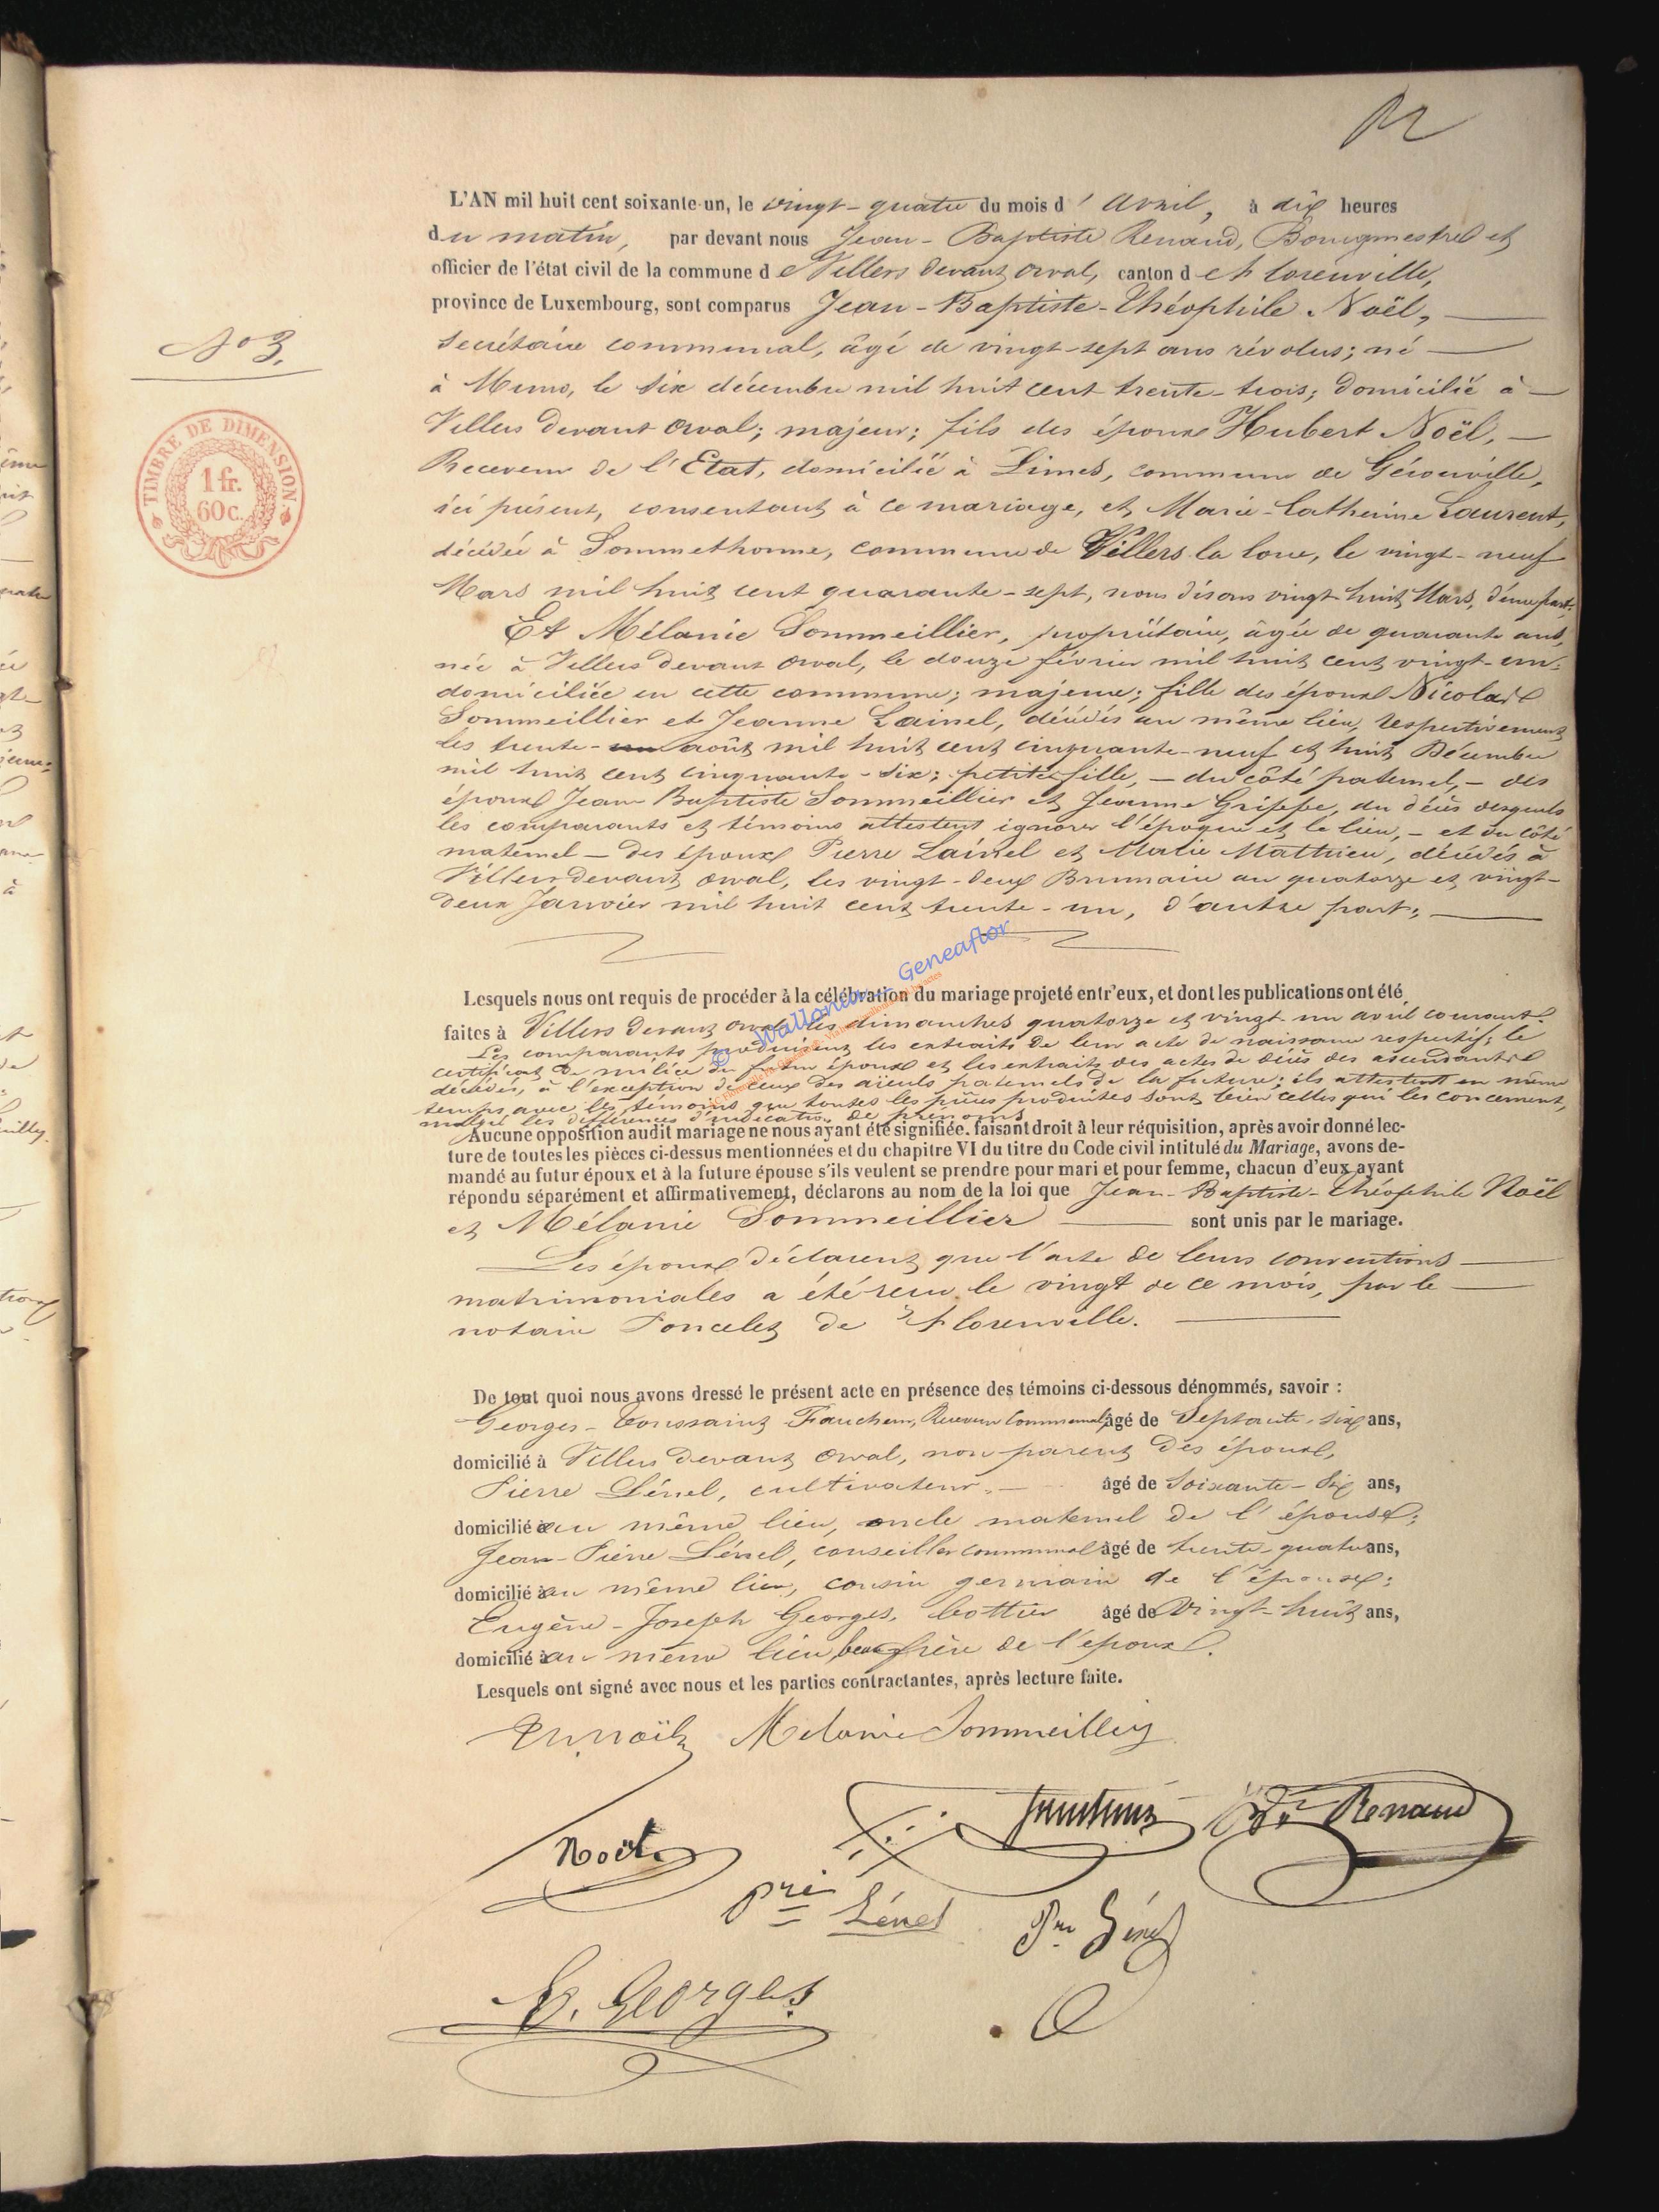 L'AN mil huit cent soixante-un, le vingt-quatre du mois d'Avril, à dix heures
du matin, par devant nous Jean-Baptiste Renaud, Bourgmestre et
officier de l'état civil de la commune de Villers devant Orval, canton de Florenville,
province de Luxembourg, sont comparus Jean-Baptiste-Théophile Noël,
Secrétaire communal, âgé de vingt-sept ans révolus; né
N° 3.
à Muno, le six décembre mil huit cent trente-trois; domicilié à
Villers devant Orval; majeur; fils des époux Hubert Noël,
TIMBRE DE DIMENSION
1 fr.
60 c.
Receveur de l'Etat, domicilié à Limes, commune de Gérouville,
ici présent, consentant à ce mariage, et Marie-Catherine Laurent,
décédée à Sommethonne, commune de Villers la loue, le vingt-neuf
Mars mil huit cent quarante-sept, nous disons vingt-huit Mars, d'une part;
Et Mélanie Sommeillier, propriétaire, âgée de quarante ans,
née à Villers devant Orval, le douze février mil huit cent vingt-un;
domiciliée en cette commune; majeure; fille des époux Nicolas
Sommeillier et Jeanne Lainel, décédés au même lieu, respectivement
les trente-un août mil huit cent cinquante-neuf et huit Décembre
mil huit cent cinquante-six; petite fille, — du côté paternel, — des
époux Jean Baptiste Sommeillier et Jeanne Grippe, du décès desquels
les comparants et témoins attestent ignorer l'époque et le lieu, — et du côté
maternel — des époux Pierre Lainel et Marie Mathieu, décédés à
Villers devant Orval, les vingt-deux Brumaire an quatorze et vingt-
deux Janvier mil huit cent trente-un, d'autre part;
© Wallonia - Geneaflor
Lesquels nous ont requis de procéder à la célébration du mariage projeté entr'eux, et dont les publications ont été
faites à Villers devant Orval, les dimanches quatorze et vingt-un avril courant.
Les comparants produisent les extraits de leur acte de naissance respectif; le
certificat de milice du futur époux et les extraits des actes de décès des ascendants
décédés, à l'exception de ceux des aïeuls paternels de la future; ils attestent en même
temps avec les témoins que toutes les pièces produites sont bien celles qui les concernent,
malgré les différences d'indication de prénoms
Aucune opposition audit mariage ne nous ayant été signifiée. faisant droit à leur réquisition, après avoir donné lec-
ture de toutes les pièces ci-dessus mentionnées et du chapitre VI du titre du Code civil intitulé du Mariage, avons de-
mandé au futur époux et à la future épouse s'ils veulent se prendre pour mari et pour femme, chacun d'eux ayant
répondu séparément et affirmativement, déclarons au nom de la loi que Jean-Baptiste-Théophile Noël
et Mélanie Sommeillier sont unis par le mariage.
Les époux déclarent que l'acte de leurs conventions
matrimoniales a été reçu le vingt de ce mois, par le
notaire Poncelet de Florenville.
De tout quoi nous avons dressé le présent acte en présence des témoins ci-dessous dénommés, savoir :
Georges-Toussaint Receveur Communal, âgé de Septante-six ans,
domicilié à Villers devant Orval, non parent des époux,
Pierre Lénel, cultivateur, âgé de Soixante-six ans,
domicilié au même lieu, oncle maternel de l'épouse;
Jean-Pierre Lénel, conseiller communal âgé de trente-quatre ans,
domicilié à au même lieu, cousin germain de l'épouse;
Eugène-Joseph Georges, bottier âgé de Vingt-huit ans,
domicilié à au même lieu, beau frère de l'époux.
Lesquels ont signé avec nous et les parties contractantes, après lecture faite.
Th. Noël Mélanie Sommeillier
Noël Renaud
Pre Lénel Pre Lénel
E. Georges